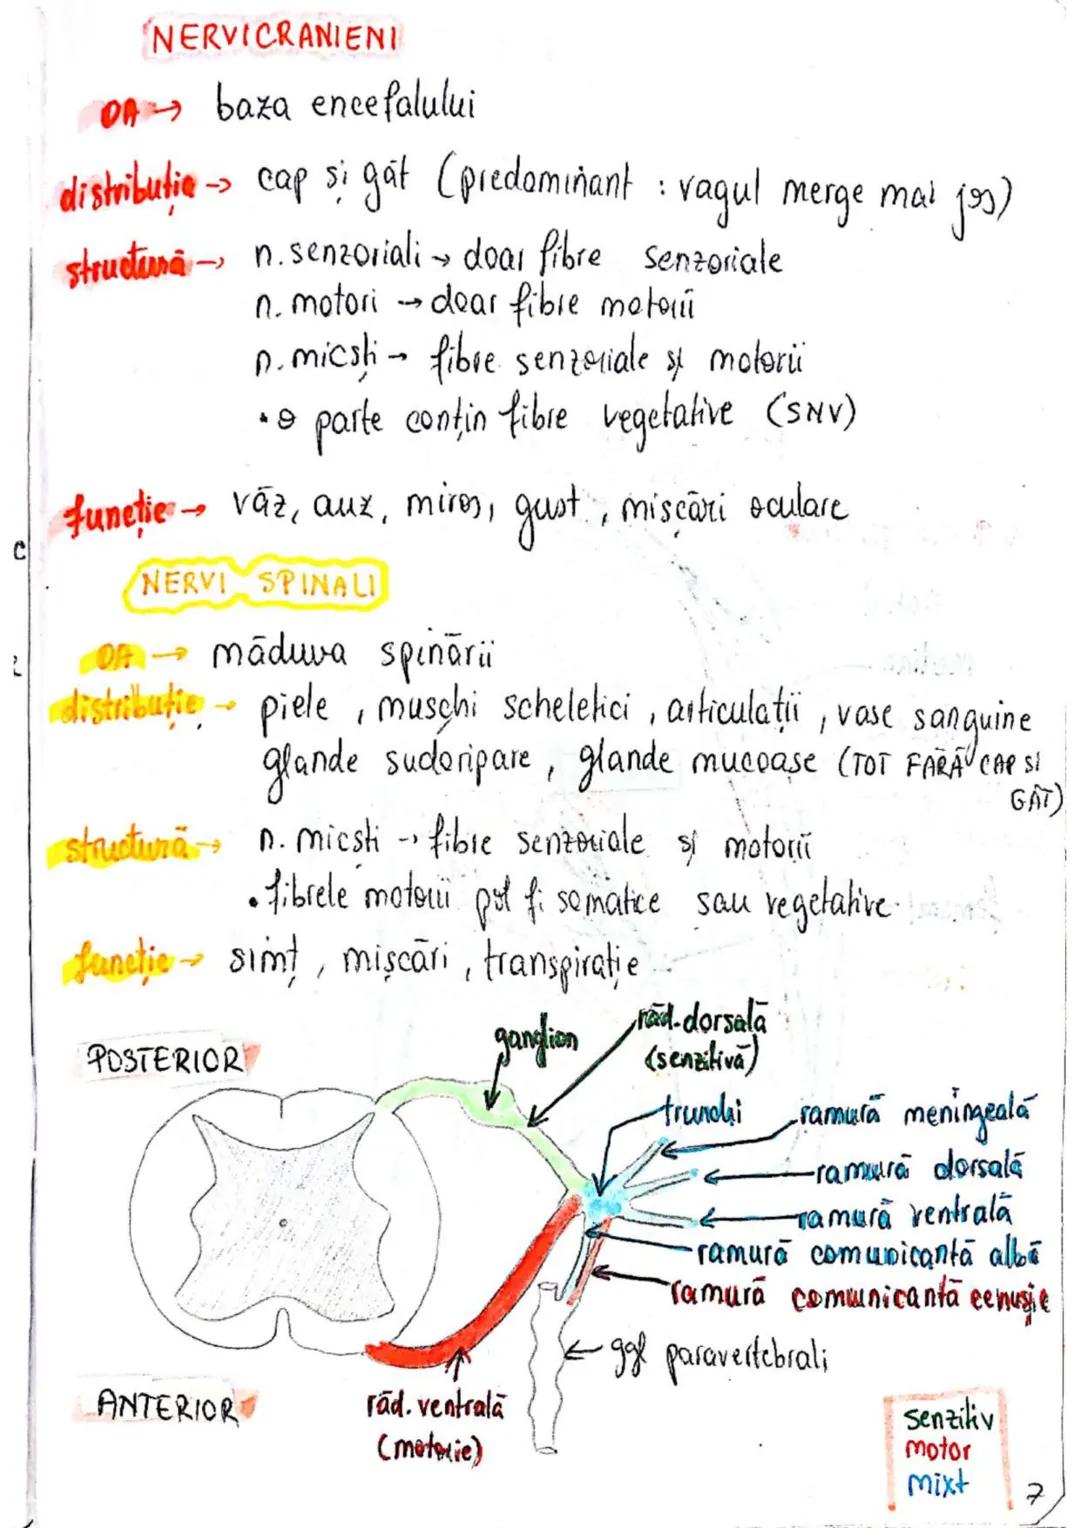 NERVI CRANIENI
OA → baza encefalului
distribuție → cap și gât (predominant : vagul merge mai jos)
structură → n. senzoriali → doar fibre senzoriale
n. motori → doar fibre motorii
n. micști → fibre senzoriale și motorii
• o parte conțin fibre vegetative (SNV)
funcție → văz, auz, miros, gust, mișcări oculare
NERVI SPINALI
OA → măduva spinării
distribuție → piele, mușchi scheletici, articulații, vase sanguine
glande sudoripare, glande mucoase (TOT FĂRĂ CAP SI
GÂT)
structură → n. micsti → fibre senzoriale și motorii
• fibrele motorii pot fi somatice sau vegetative
funcție → simț, mișcări, transpirație
POSTERIOR
ganglion
răd. dorsală
(senzitivă)
trunchi
ramură meningeală
ramură dorsală
ramură ventrală
ramură comunicantă albă
ramură comunicantă cenușie
ggl paravertebrali
ANTERIOR
răd. ventrală
(motorie)
senzitiv
motor
mixt
7